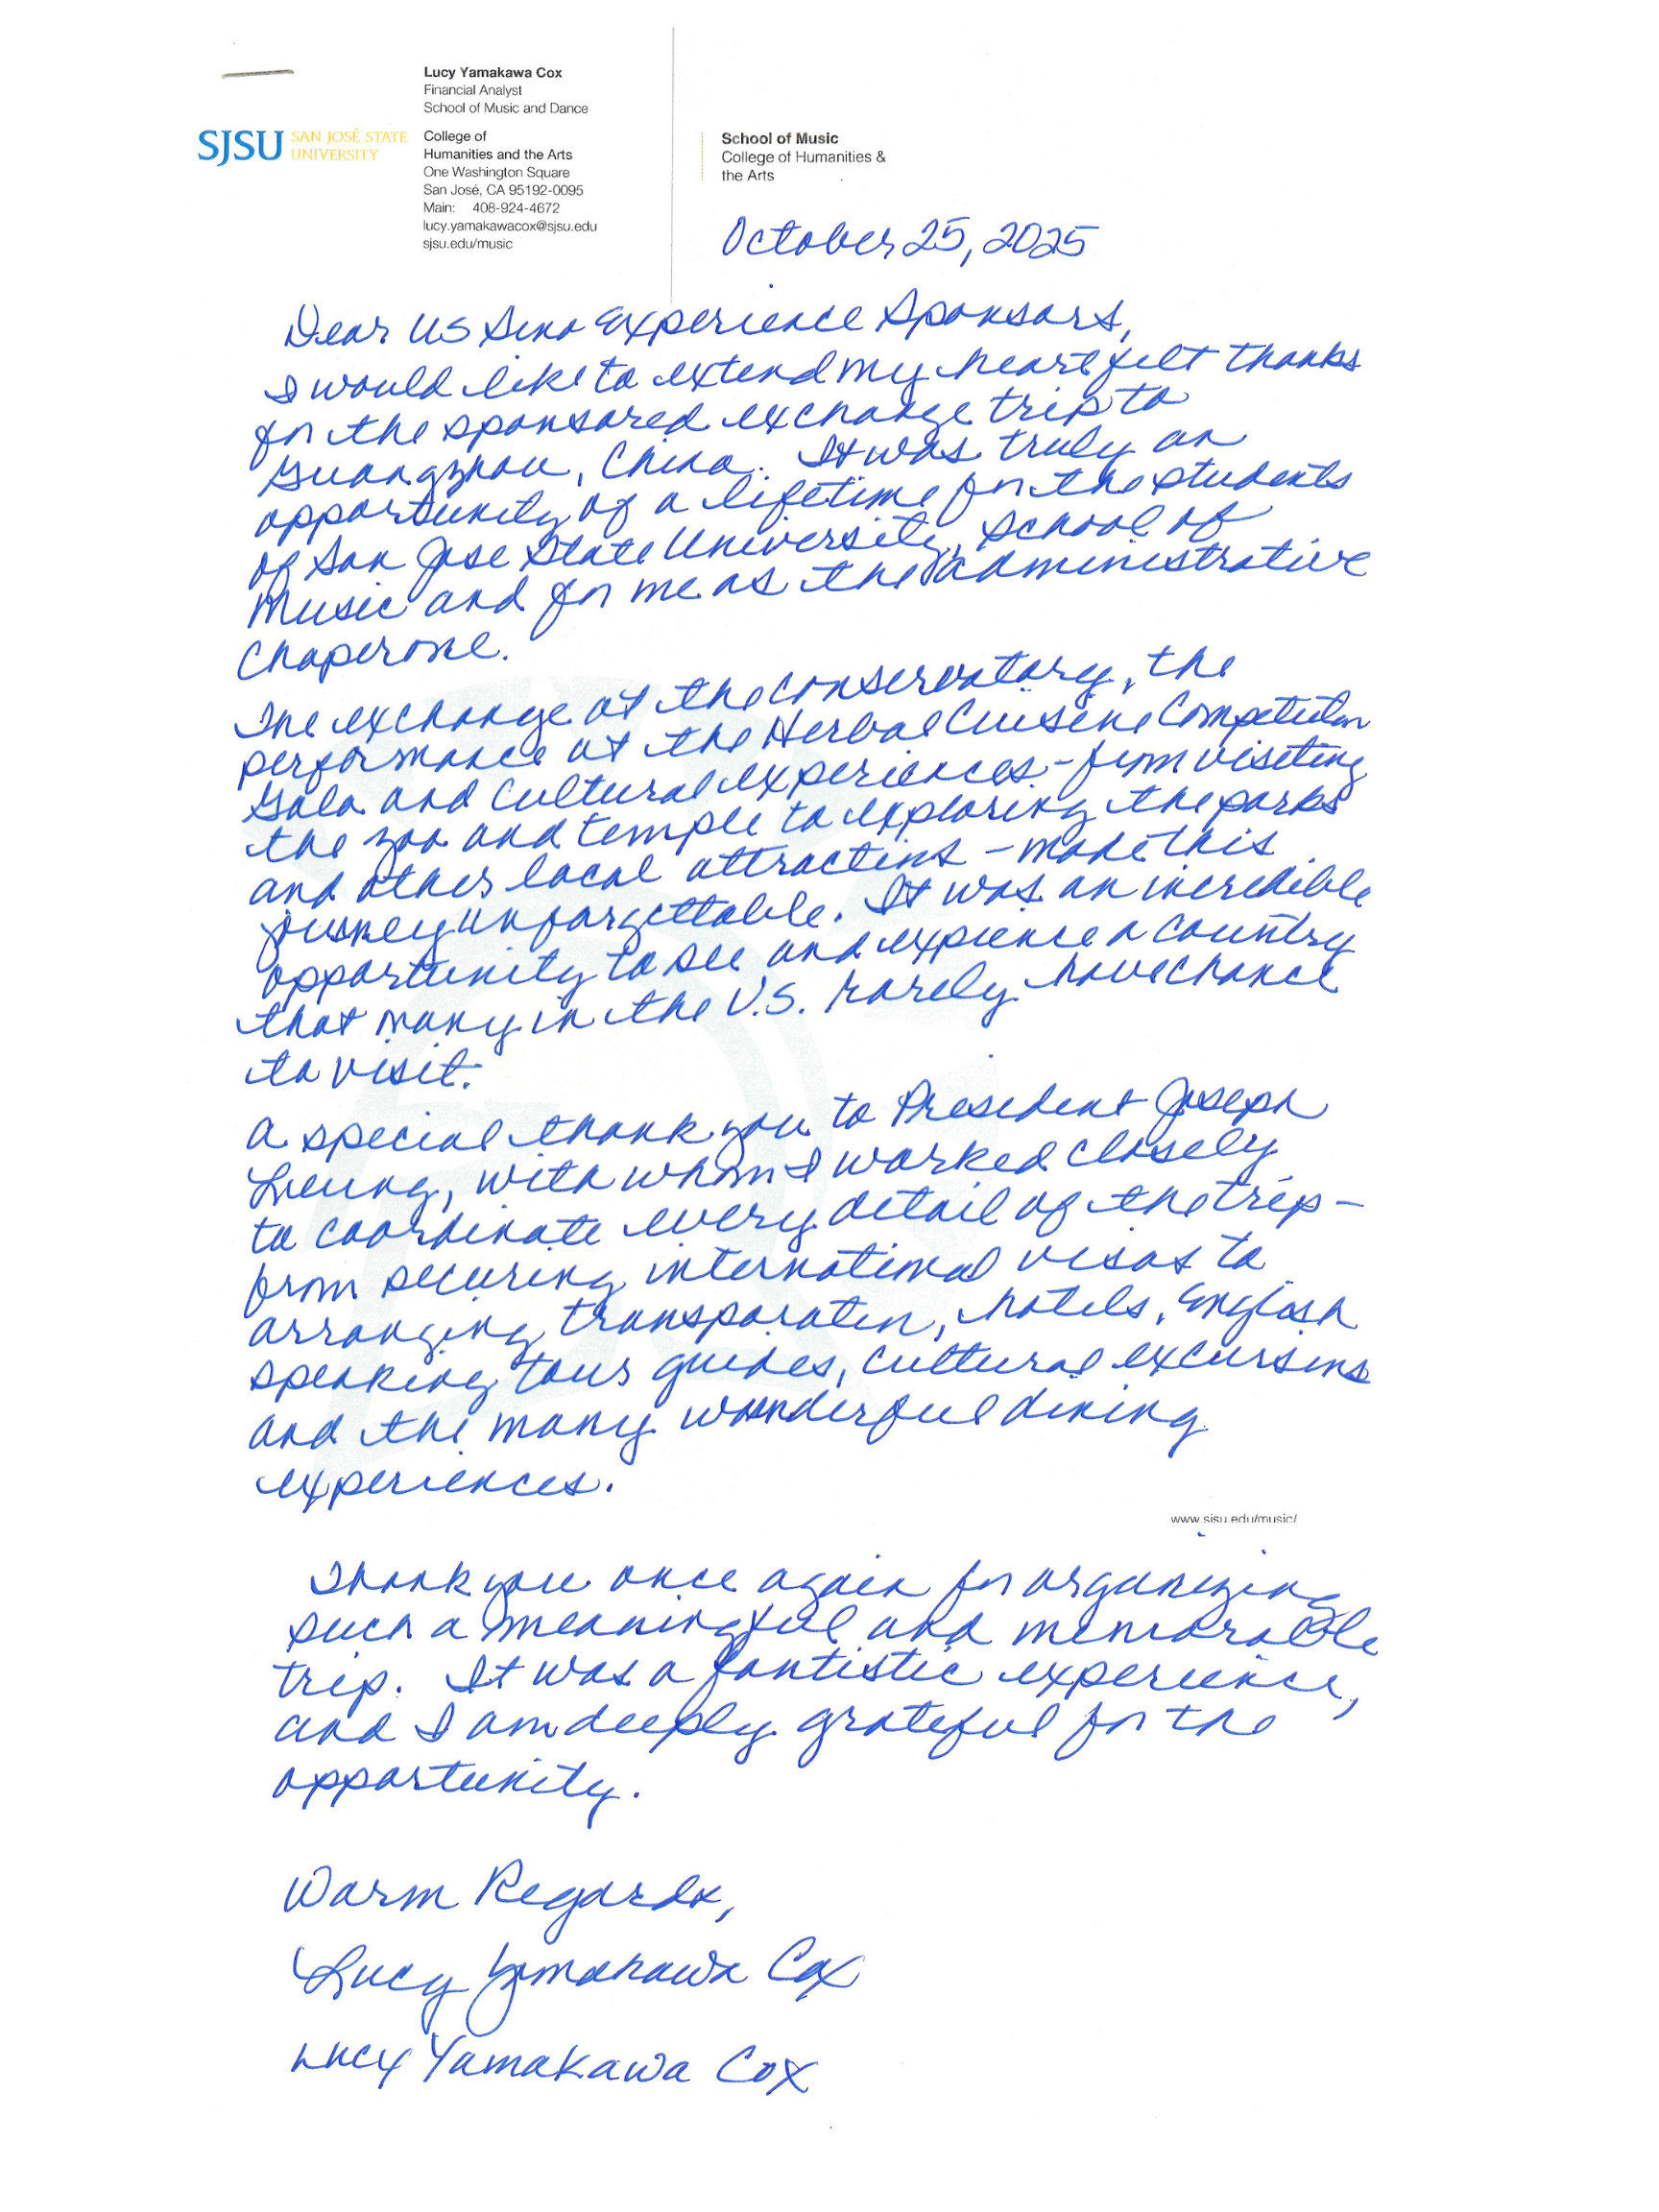 Lucy Yamakawa Cox
Financial Analyst
School of Music and Dance
SJSU SAN JOSÉ STATE UNIVERSITY
College of
Humanities and the Arts
One Washington Square
San José, CA 95192-0095
Main: 408-924-4672
lucy.yamakawacox@sjsu.edu
sjsu.edu/music
School of Music
College of Humanities &
the Arts
October 25, 2025
Dear US Sino Experience Sponsors,
I would like to extend my heartfelt thanks
for the sponsored exchange trip to
Guangzhou, China. It was truly an
opportunity of a lifetime for the students
of San Jose State University, School of
Music and for me as the administrative
chaperone.
The exchange at the conservatory, the
performance at the Herbal Cuisine Competition
Gala and cultural experiences - from visiting
the zoo and temple to exploring the parks
and other local attractins - made this
journey unforgettable. It was an incredible
opportunity to see and expience a country
that many in the U.S. rarely have chance
to visit.
A special thank you to President Joseph
Leung, with whom I worked closely
to coordinate every detail of the trip -
from securing international visas to
arranging transparatin, hotels, English
speaking tour guides, cultural excursins
and the many wonderful dining
experiences.
www.sjsu.edu/music/
Thank you once again for organizing
such a meaningful and memorable
trip. It was a fantistic experience,
and I am deeply grateful for the
opportunity.
Warm Regards,
Lucy Yamakawa Cox
Lucy Yamakawa Cox